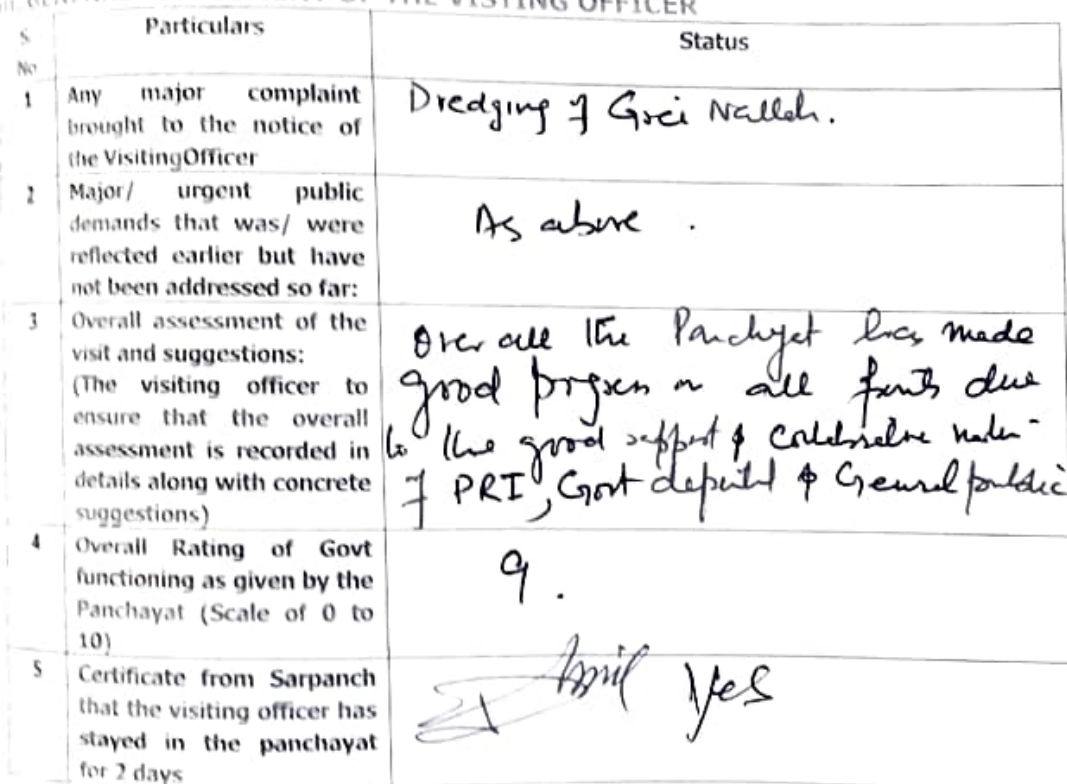 OF THE VISTING OFFICER
S.
No
Particulars
Status
1
Any major complaint
brought to the notice of
the VisitingOfficer
Dredging of Nalleh.
2
Major/ urgent public
demands that was/ were
reflected earlier but have
not been addressed so far:
As above .
3
Overall assessment of the
visit and suggestions:
(The visiting officer to
ensure that the overall
assessment is recorded in
details along with concrete
suggestions)
Over all the Panchyat has made
good progress on all due
to the good support &
of PRI, Govt & General public
4
Overall Rating of Govt
functioning as given by the
Panchayat (Scale of 0 to
10)
9.
5
Certificate from Sarpanch
that the visiting officer has
stayed in the panchayat
for 2 days
Yes